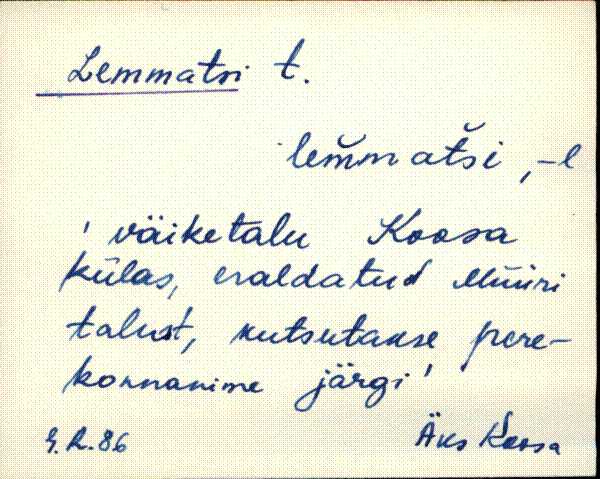 Lemmatsi t.
lem̆m atši, -l
' väiketalu Koosa
külas, eraldatud Müüri
talust, kutsutakse pere-
konnanime järgi '
E. R. 86 Äks Koosa